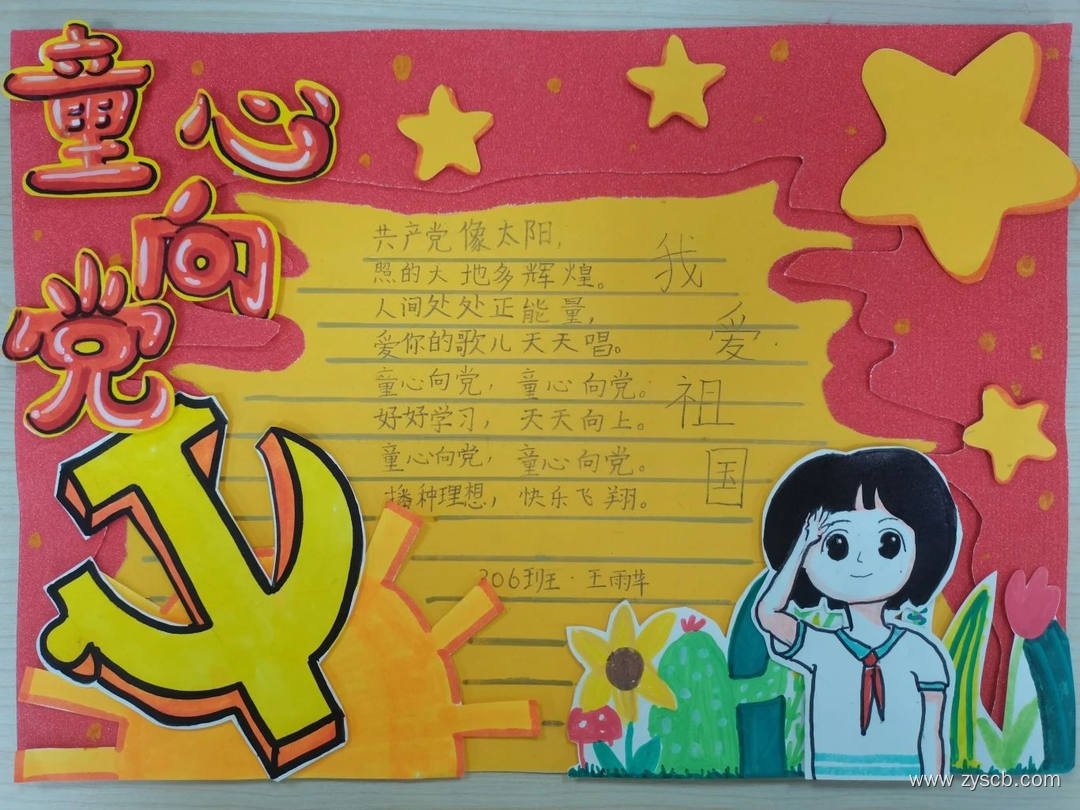 童心向党
共产党像太阳，
照的大地多辉煌。
人间处处正能量，
爱你的歌儿天天唱。
童心向党，童心向党。
好好学习，天天向上。
童心向党，童心向党。
播种理想，快乐飞翔。
我爱祖国
306班王·王雨华
www.zyscb.com